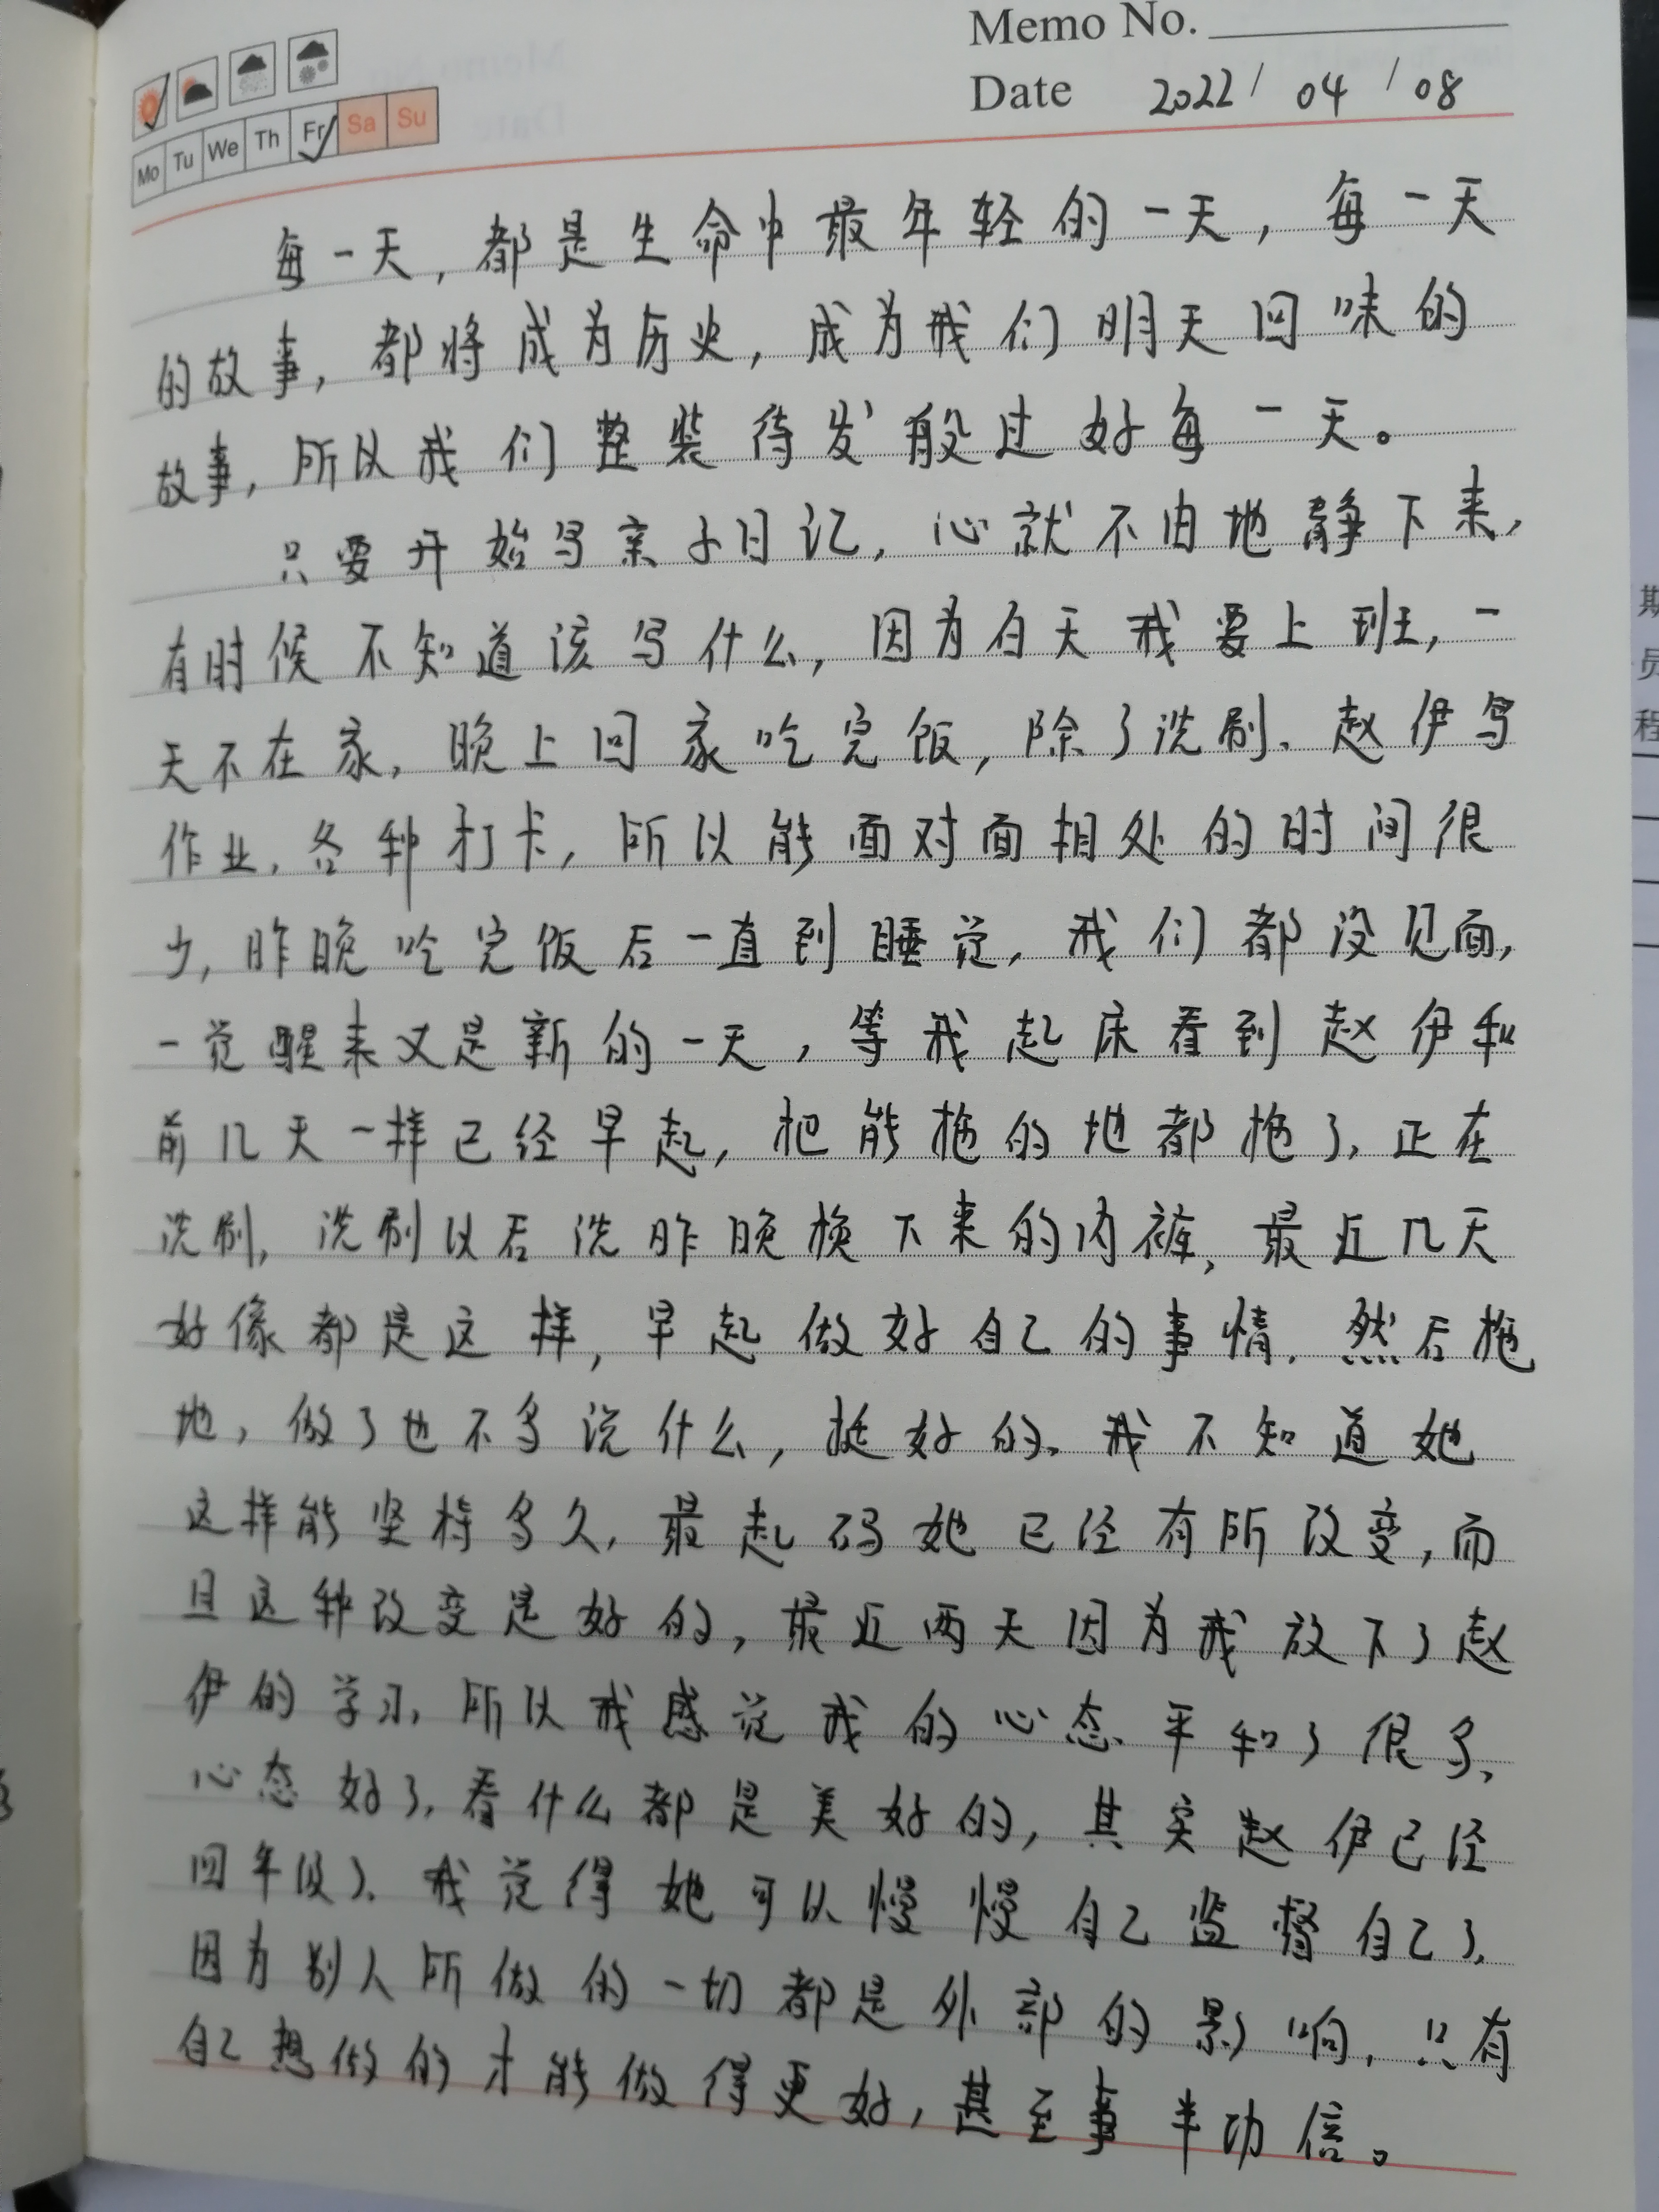 Memo No.
Date 2022/04/08
Mo Tu We Th Fr Sa Su
每一天，都是生命中最年轻的一天，每一天
的故事，都将成为历史，成为我们明天回味的
故事，所以我们整装待发般过好每一天。
只要开始写亲子日记，心就不由地静下来，
有时候不知道该写什么，因为白天我要上班，一
天不在家，晚上回家吃完饭，除了洗刷、赵伊写
作业，各种打卡，所以能面对面相处的时间很
少，昨晚吃完饭后一直到睡觉，我们都没见面，
一觉醒来又是新的一天，等我起床看到赵伊和
前几天一样已经早起，把能拖的地都拖了，正在
洗刷，洗刷以后洗昨晚换下来的内裤，最近几天
好像都是这样，早起做好自己的事情，然后拖
地，做了也不多说什么，挺好的。我不知道她
这样能坚持多久，最起码她已经有所改变，而
且这种改变是好的，最近两天因为我放下了赵
伊的学习，所以我感觉我的心态平和了很多，
心态好了，看什么都是美好的，其实赵伊已经
四年级了，我觉得她可以慢慢自己监督自己了，
因为别人所做的一切都是外部的影响，只有
自己想做的才能做得更好，甚至事半功倍。
期
员
程